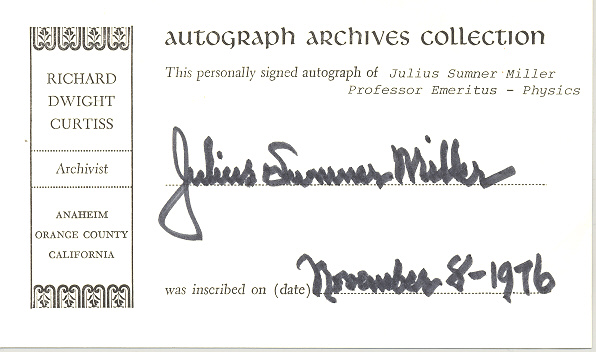 AUTOGRAPH ARCHIVES COLLECTION
RICHARD
DWIGHT
CURTISS
Archivist
ANAHEIM
ORANGE COUNTY
CALIFORNIA
This personally signed autograph of Julius Sumner Miller
Professor Emeritus - Physics
Julius Sumner Miller
was inscribed on (date) November 8-1976